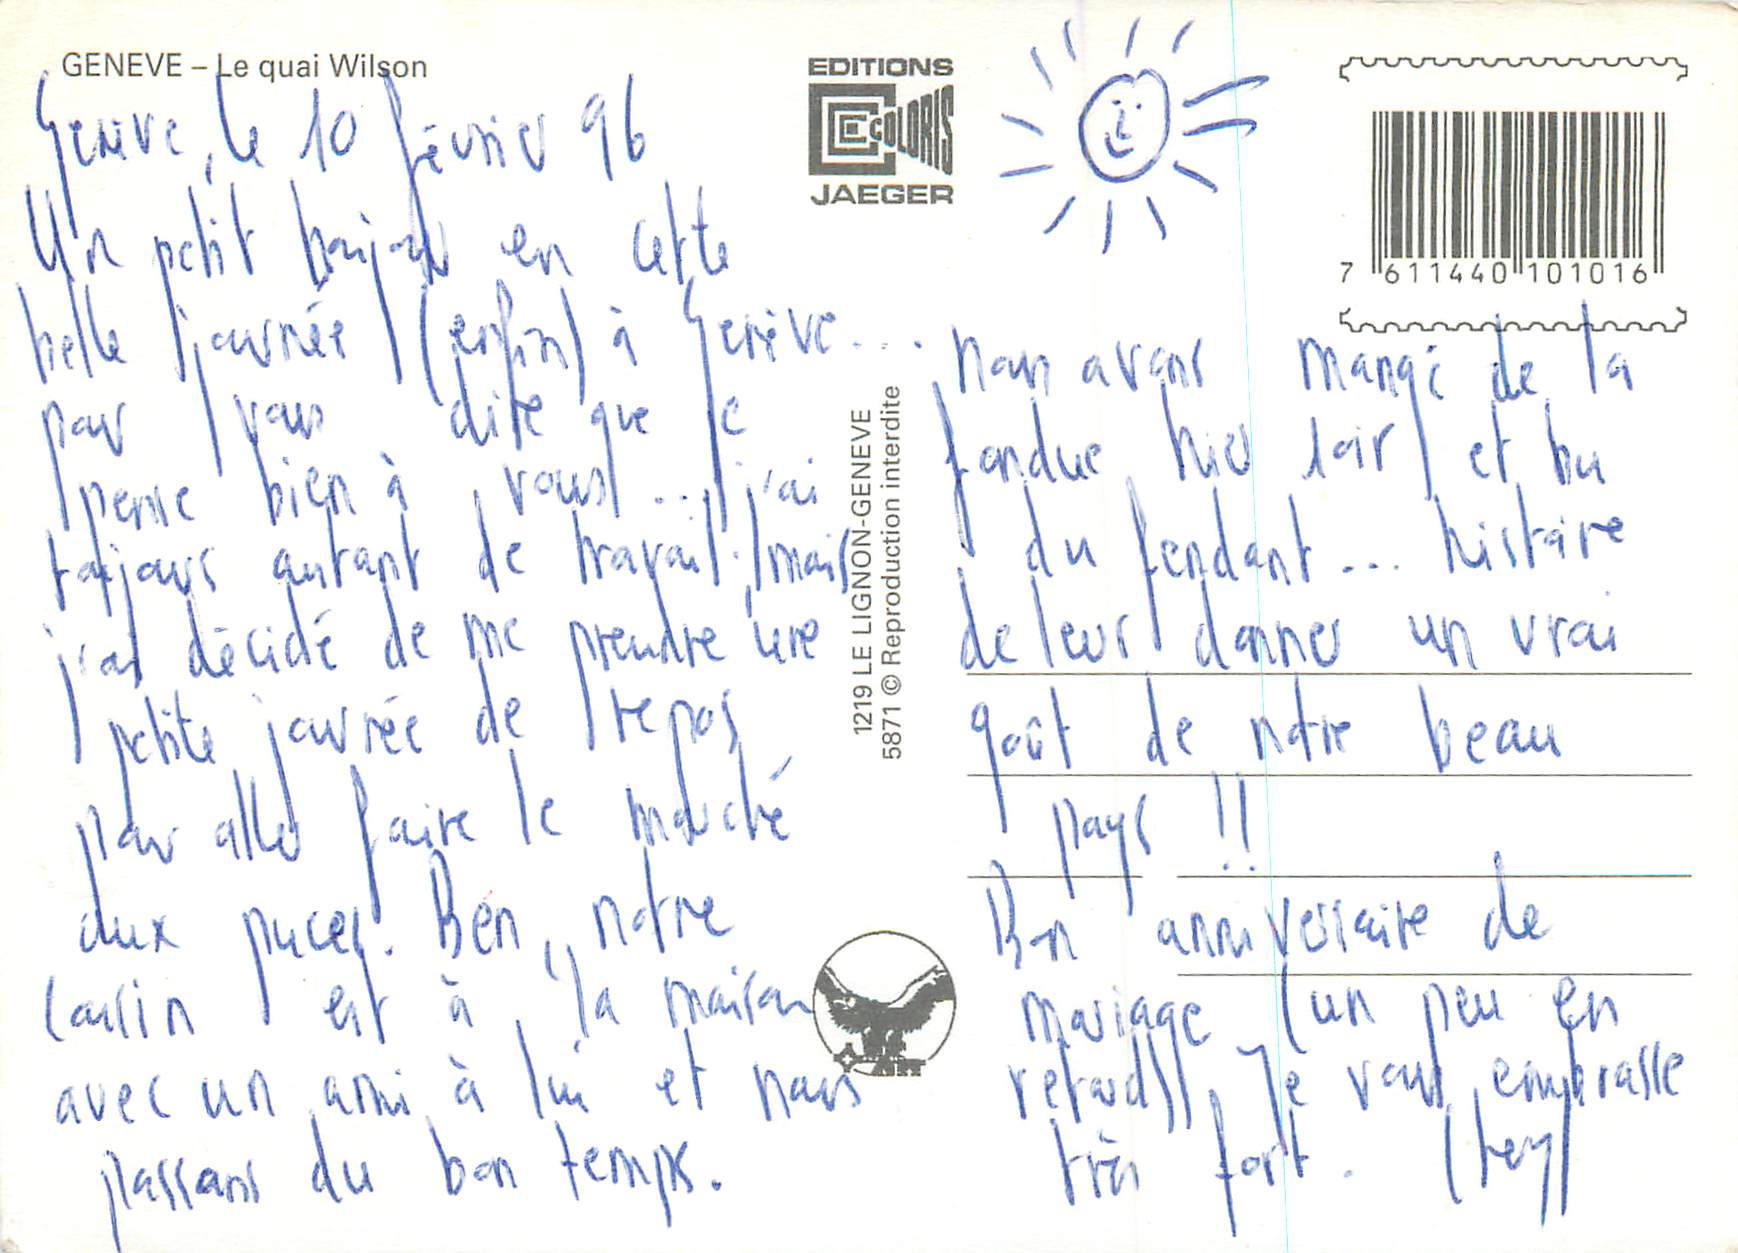 GENEVE – Le quai Wilson
Genève, le 10 février 96
Un petit bonjour en cette
belle journée (enfin) à Genève...
pour vous dire que je
pense bien à vous... j'ai
toujours autant de travail, mais
j'ai décidé de me prendre une
petite journée de repos
pour aller faire le marché
aux puces. Ben, notre
cousin est à la maison
avec un ami à lui et nous
passons du bon temps.
EDITIONS
COLORIS
JAEGER
1219 LE LIGNON-GENEVE
5871 © Reproduction interdite
7 611440 101016
Nous avons mangé de la
fondue hier soir et bu
du fendant... histoire
de leur donner un vrai
goût de notre beau
pays !!
Bon anniversaire de
mariage (un peu en
retard). Je vous embrasse
très fort.